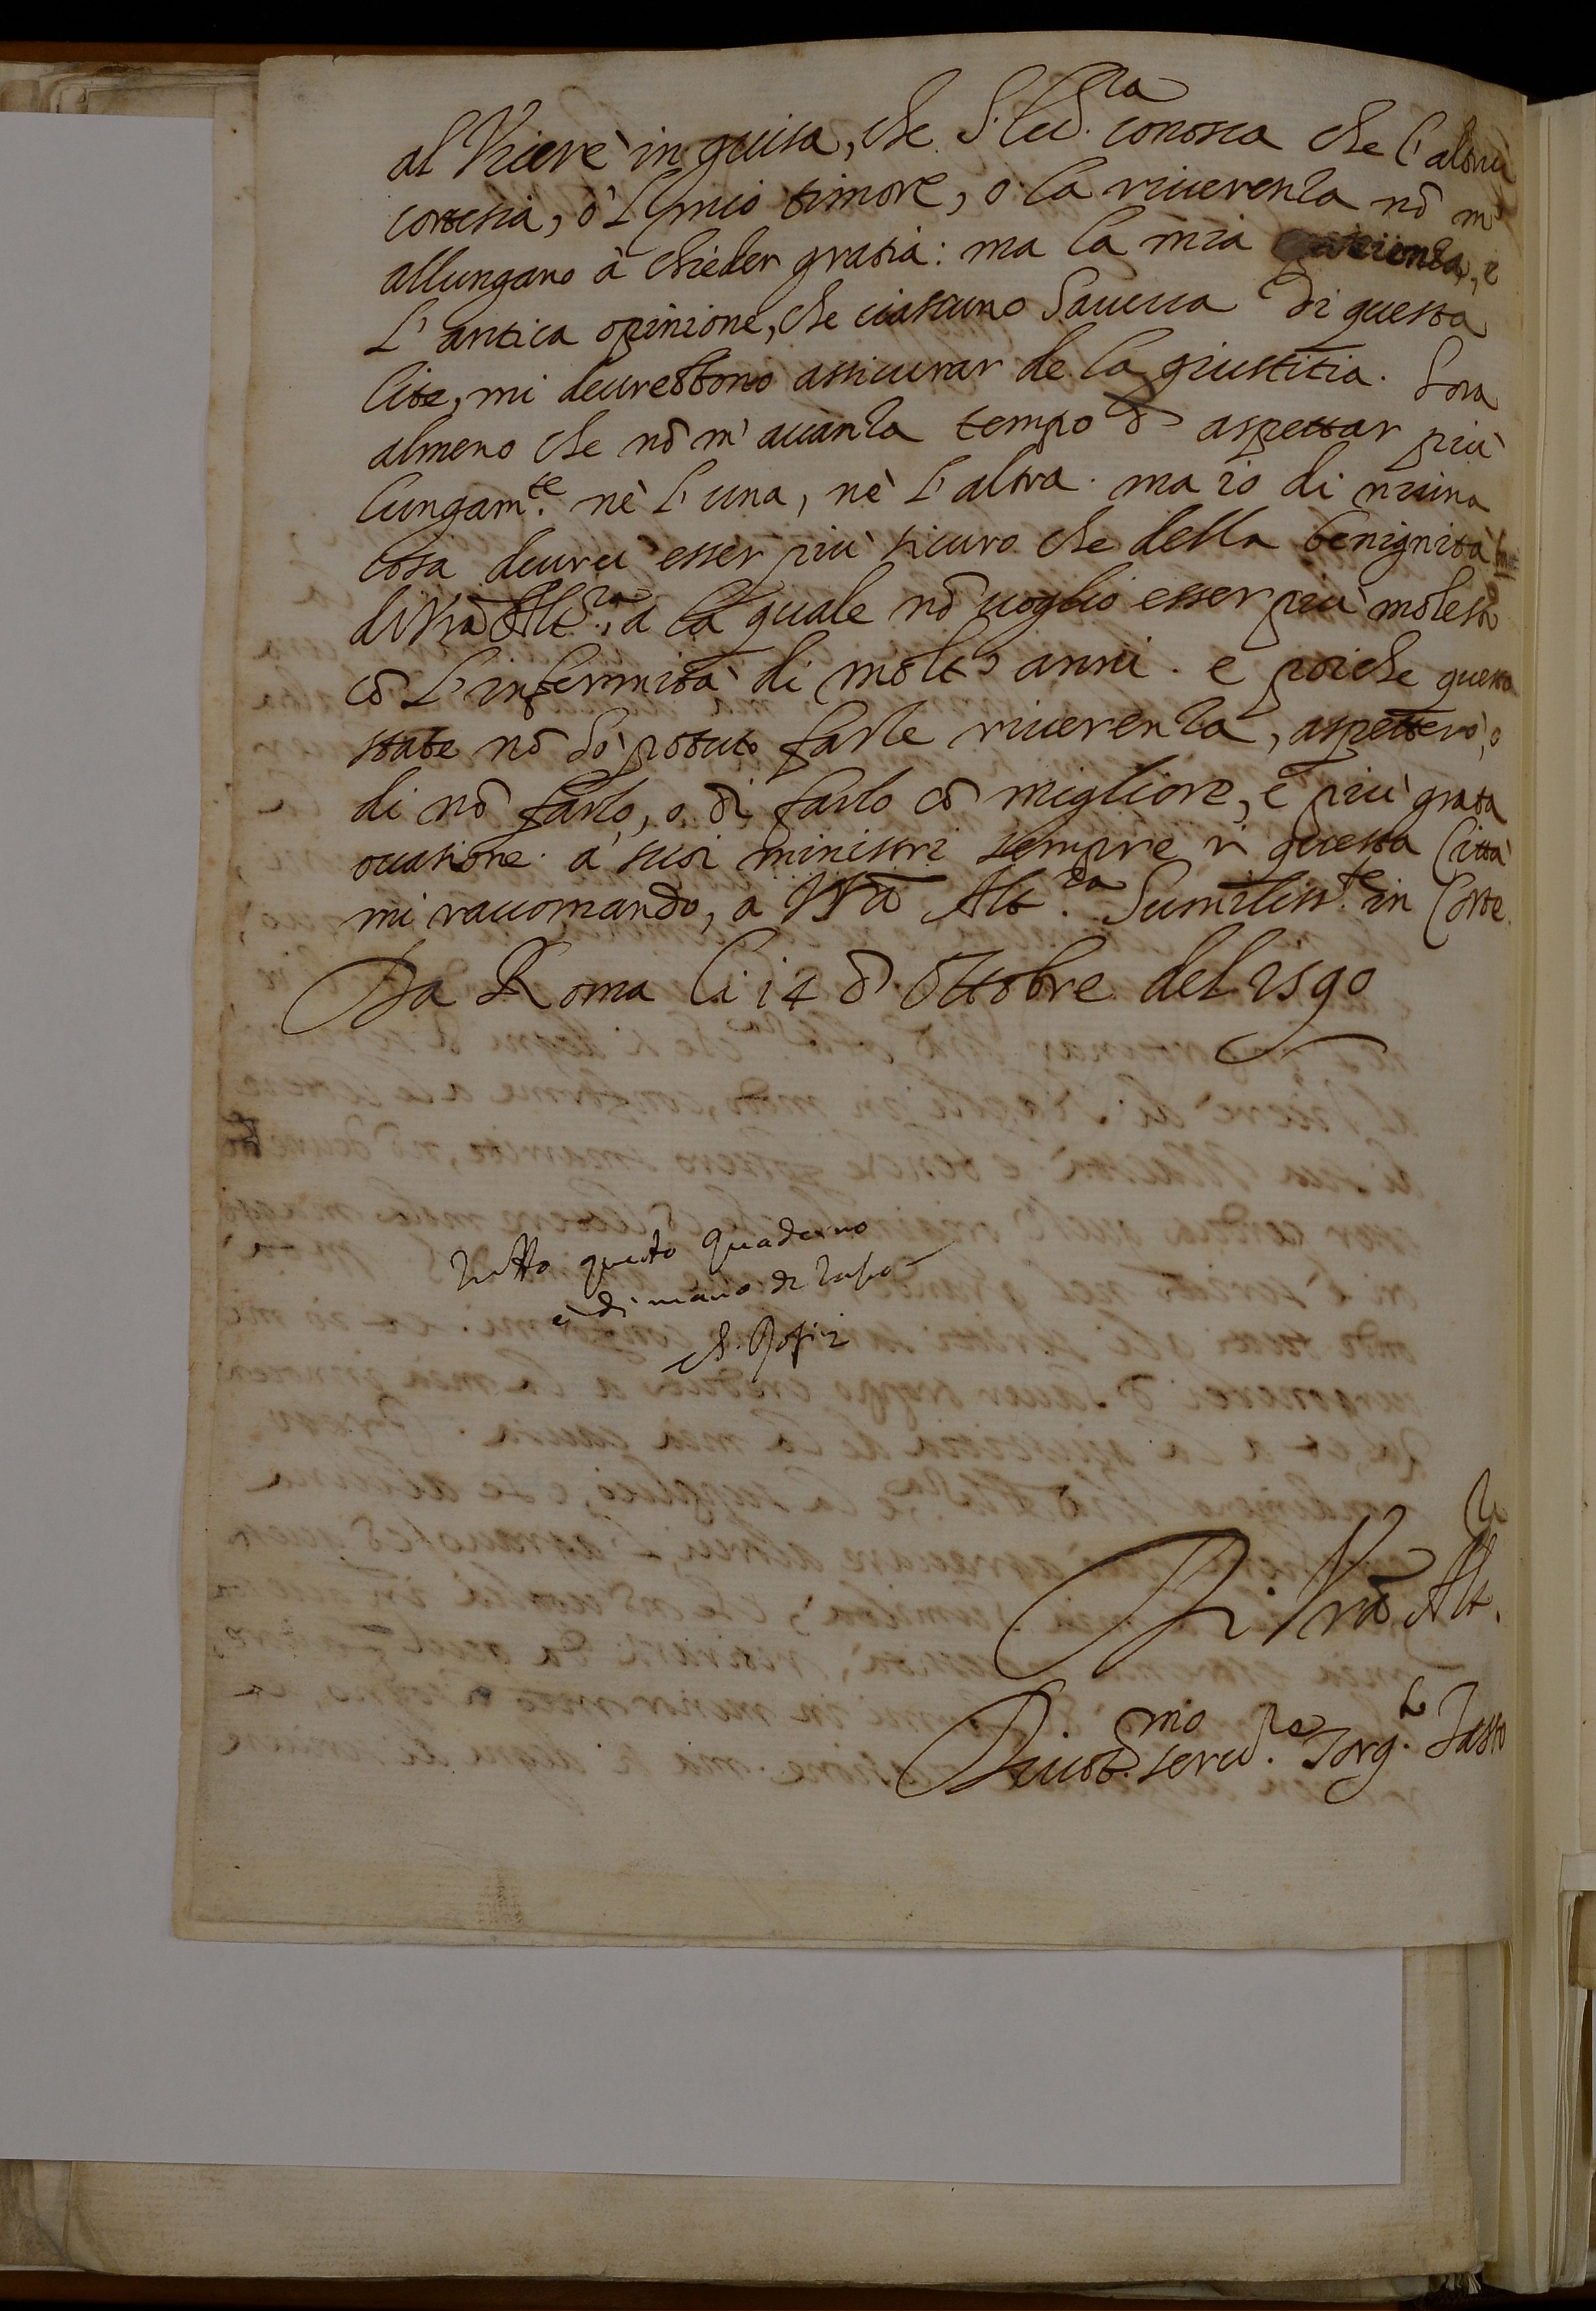 al Vicerè in guisa, che S. Ecc.za conosca che l'altrui
cortesia, o 'l mio timore, o la riuerenza nō m'
allungano à chieder gratia: ma la mia e
l'antica opinione, che ciascuno haueua di questa
lite, mi deurebbono assicurar de la giustitia. hora
almeno che nō m'auanza tempo d' aspettar più
lungam.te nè l'una, nè l'altra. ma io di niuna
cosa deurei esser più sicuro che della benignità
di Vrā Alt.za, a la quale nō uoglio esser più molesto
cō l'infermità di molti anni. e poiche questa
state nō hò potuto farle riuerenza, aspetterò, o
di nō farlo, o di farlo cō migliore, e più grata
occasione. a' suoi ministri sempre in questa Città
mi raccomando, a Vrā Alt.za humiliss.te in Corte.
Da Roma li 14 d' Ottobre del 1590
Tutto questo quaderno
è di mano di Tasso
Di Vrā Alt.za
Diuot.mo seru.re Torq.to Tasso